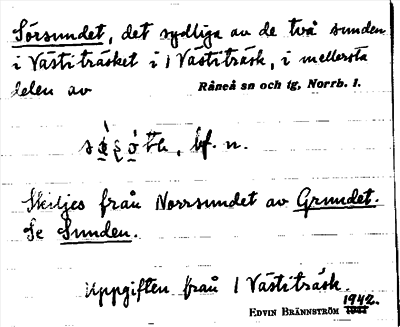 Sörsundet, det sydliga av de två sunden
i Västiträsket i 1 Västiträsk, i mellersta
delen av Råneå sn och tg, Norrb. l.
bf. n.
Skiljes från Norrsundet av Grundet.
Se Sunden.
Uppgiften från 1 Västiträsk.
1942.
EDVIN BRÄNNSTRÖM